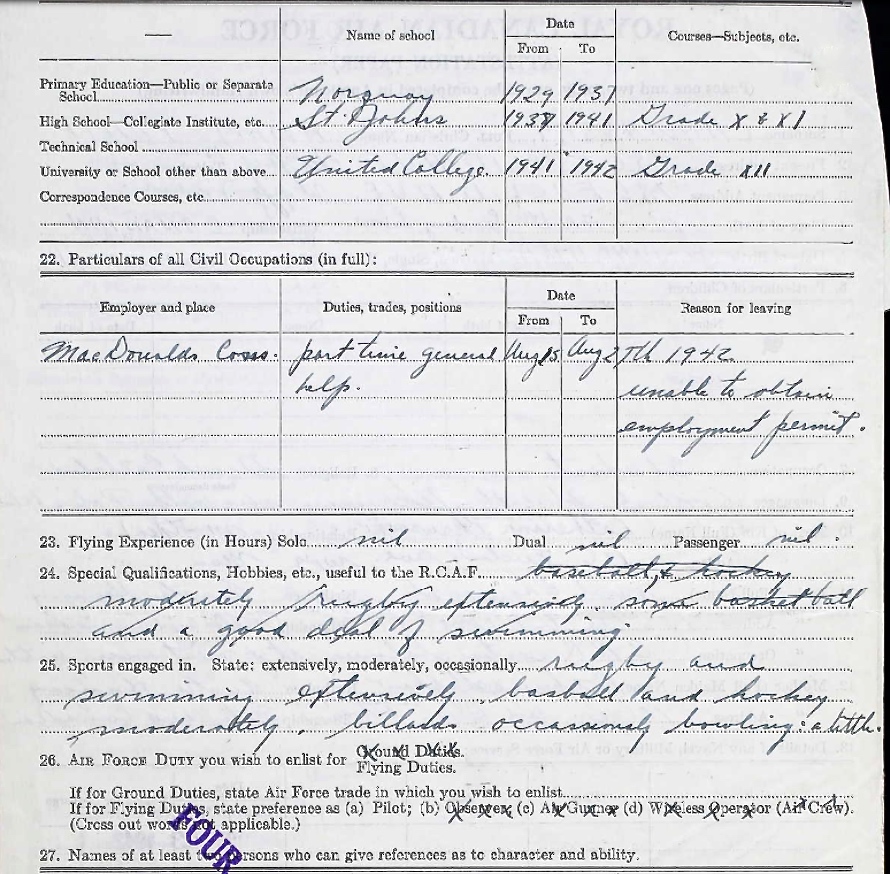 — Name of school Date Courses—Subjects, etc.
From To
Primary Education—Public or Separate
School Norquay 1929 1937
High School—Collegiate Institute, etc. St. Johns 1937 1941 Grade X & XI
Technical School
University or School other than above United College. 1941 1942 Grade XII
Correspondence Courses, etc.
22. Particulars of all Civil Occupations (in full):
Employer and place Duties, trades, positions Date Reason for leaving
From To
MacDonalds Cons. part time general Aug 15 Aug 27th 1942
help. unable to obtain
employment permit.
23. Flying Experience (in Hours) Solo nil Dual nil Passenger nil.
24. Special Qualifications, Hobbies, etc., useful to the R.C.A.F. baseball, & hockey
moderately rugby extensively. some basket ball
and a good deal of swimming
25. Sports engaged in. State: extensively, moderately, occasionally rugby and
swimming extensively baseball and hockey
moderately. billards occassionly bowling: a little.
26. AIR FORCE DUTY you wish to enlist for Ground Duties.
Flying Duties.
If for Ground Duties, state Air Force trade in which you wish to enlist
If for Flying Duties, state preference as (a) Pilot; (b) Observer, (c) Air Gunner (d) Wireless Operator (Air Crew).
(Cross out words not applicable.)
FOUR
27. Names of at least two persons who can give references as to character and ability.